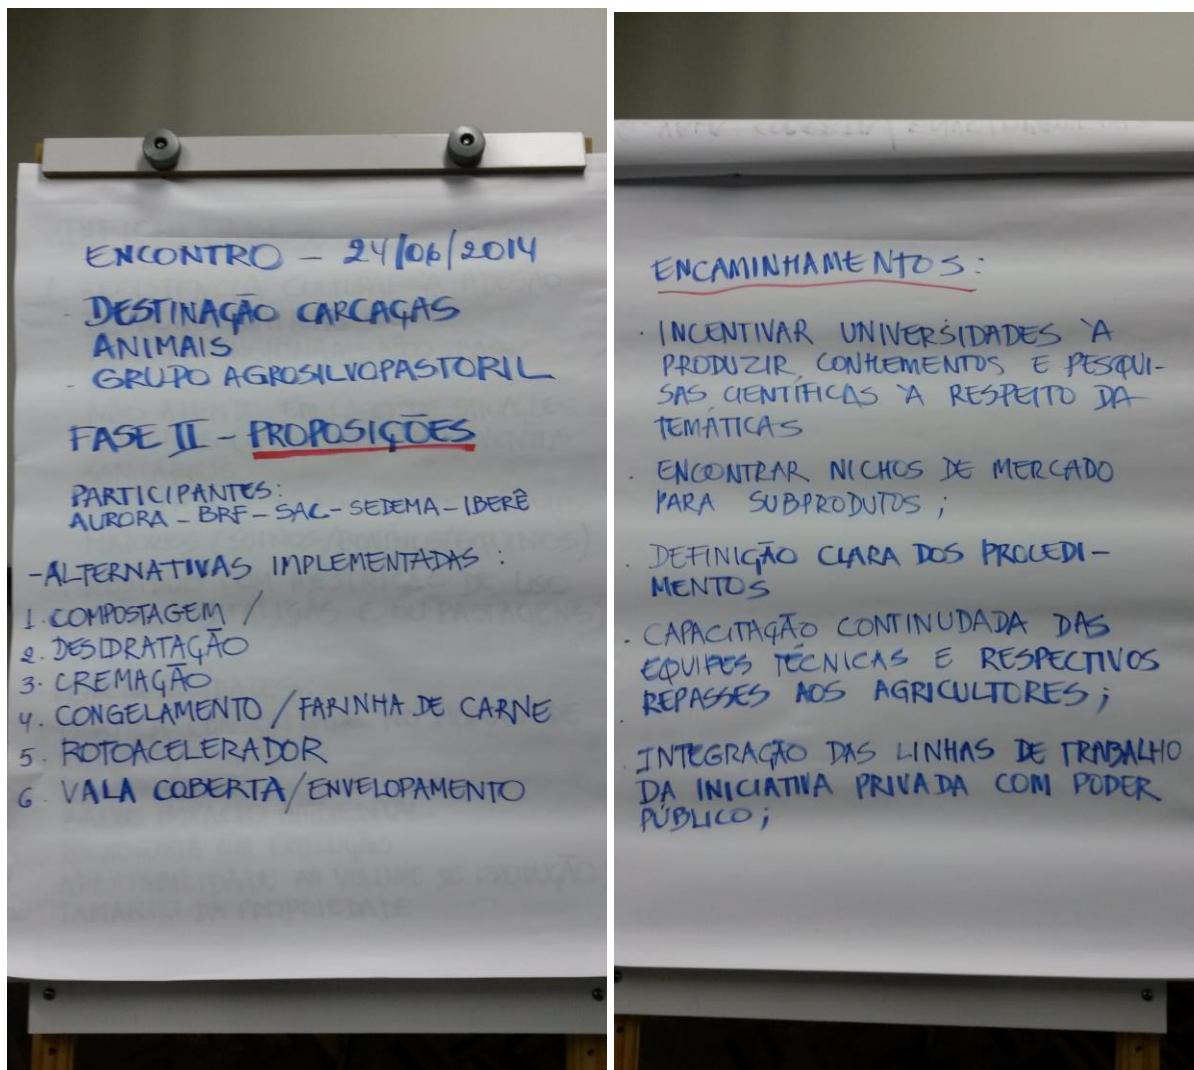 ENCONTRO - 24/06/2014
- DESTINAÇÃO CARCAÇAS
ANIMAIS
- GRUPO AGROSILVOPASTORIL
FASE II - PROPOSIÇÕES
PARTICIPANTES:
AURORA - BRF - SAC - SEDEMA - IBERÊ
- ALTERNATIVAS IMPLEMENTADAS:
1. COMPOSTAGEM /
2. DESIDRATAÇÃO
3. CREMAÇÃO
4. CONGELAMENTO / FARINHA DE CARNE
5. ROTOACELERADOR
6. VALA COBERTA / ENVELOPAMENTO
ENCAMINHAMENTOS:
· INCENTIVAR UNIVERSIDADES À
PRODUZIR CONHEMENTOS E PESQUI-
SAS CIENTÍFICAS À RESPEITO DA
TEMÁTICAS
· ENCONTRAR NICHOS DE MERCADO
PARA SUBPRODUTOS;
· DEFINIÇÃO CLARA DOS PROCEDI-
MENTOS
· CAPACITAÇÃO CONTINUDADA DAS
EQUIPES TÉCNICAS E RESPECTIVOS
REPASSES AOS AGRICULTORES;
· INTEGRAÇÃO DAS LINHAS DE TRABALHO
DA INICIATIVA PRIVADA COM PODER
PÚBLICO;